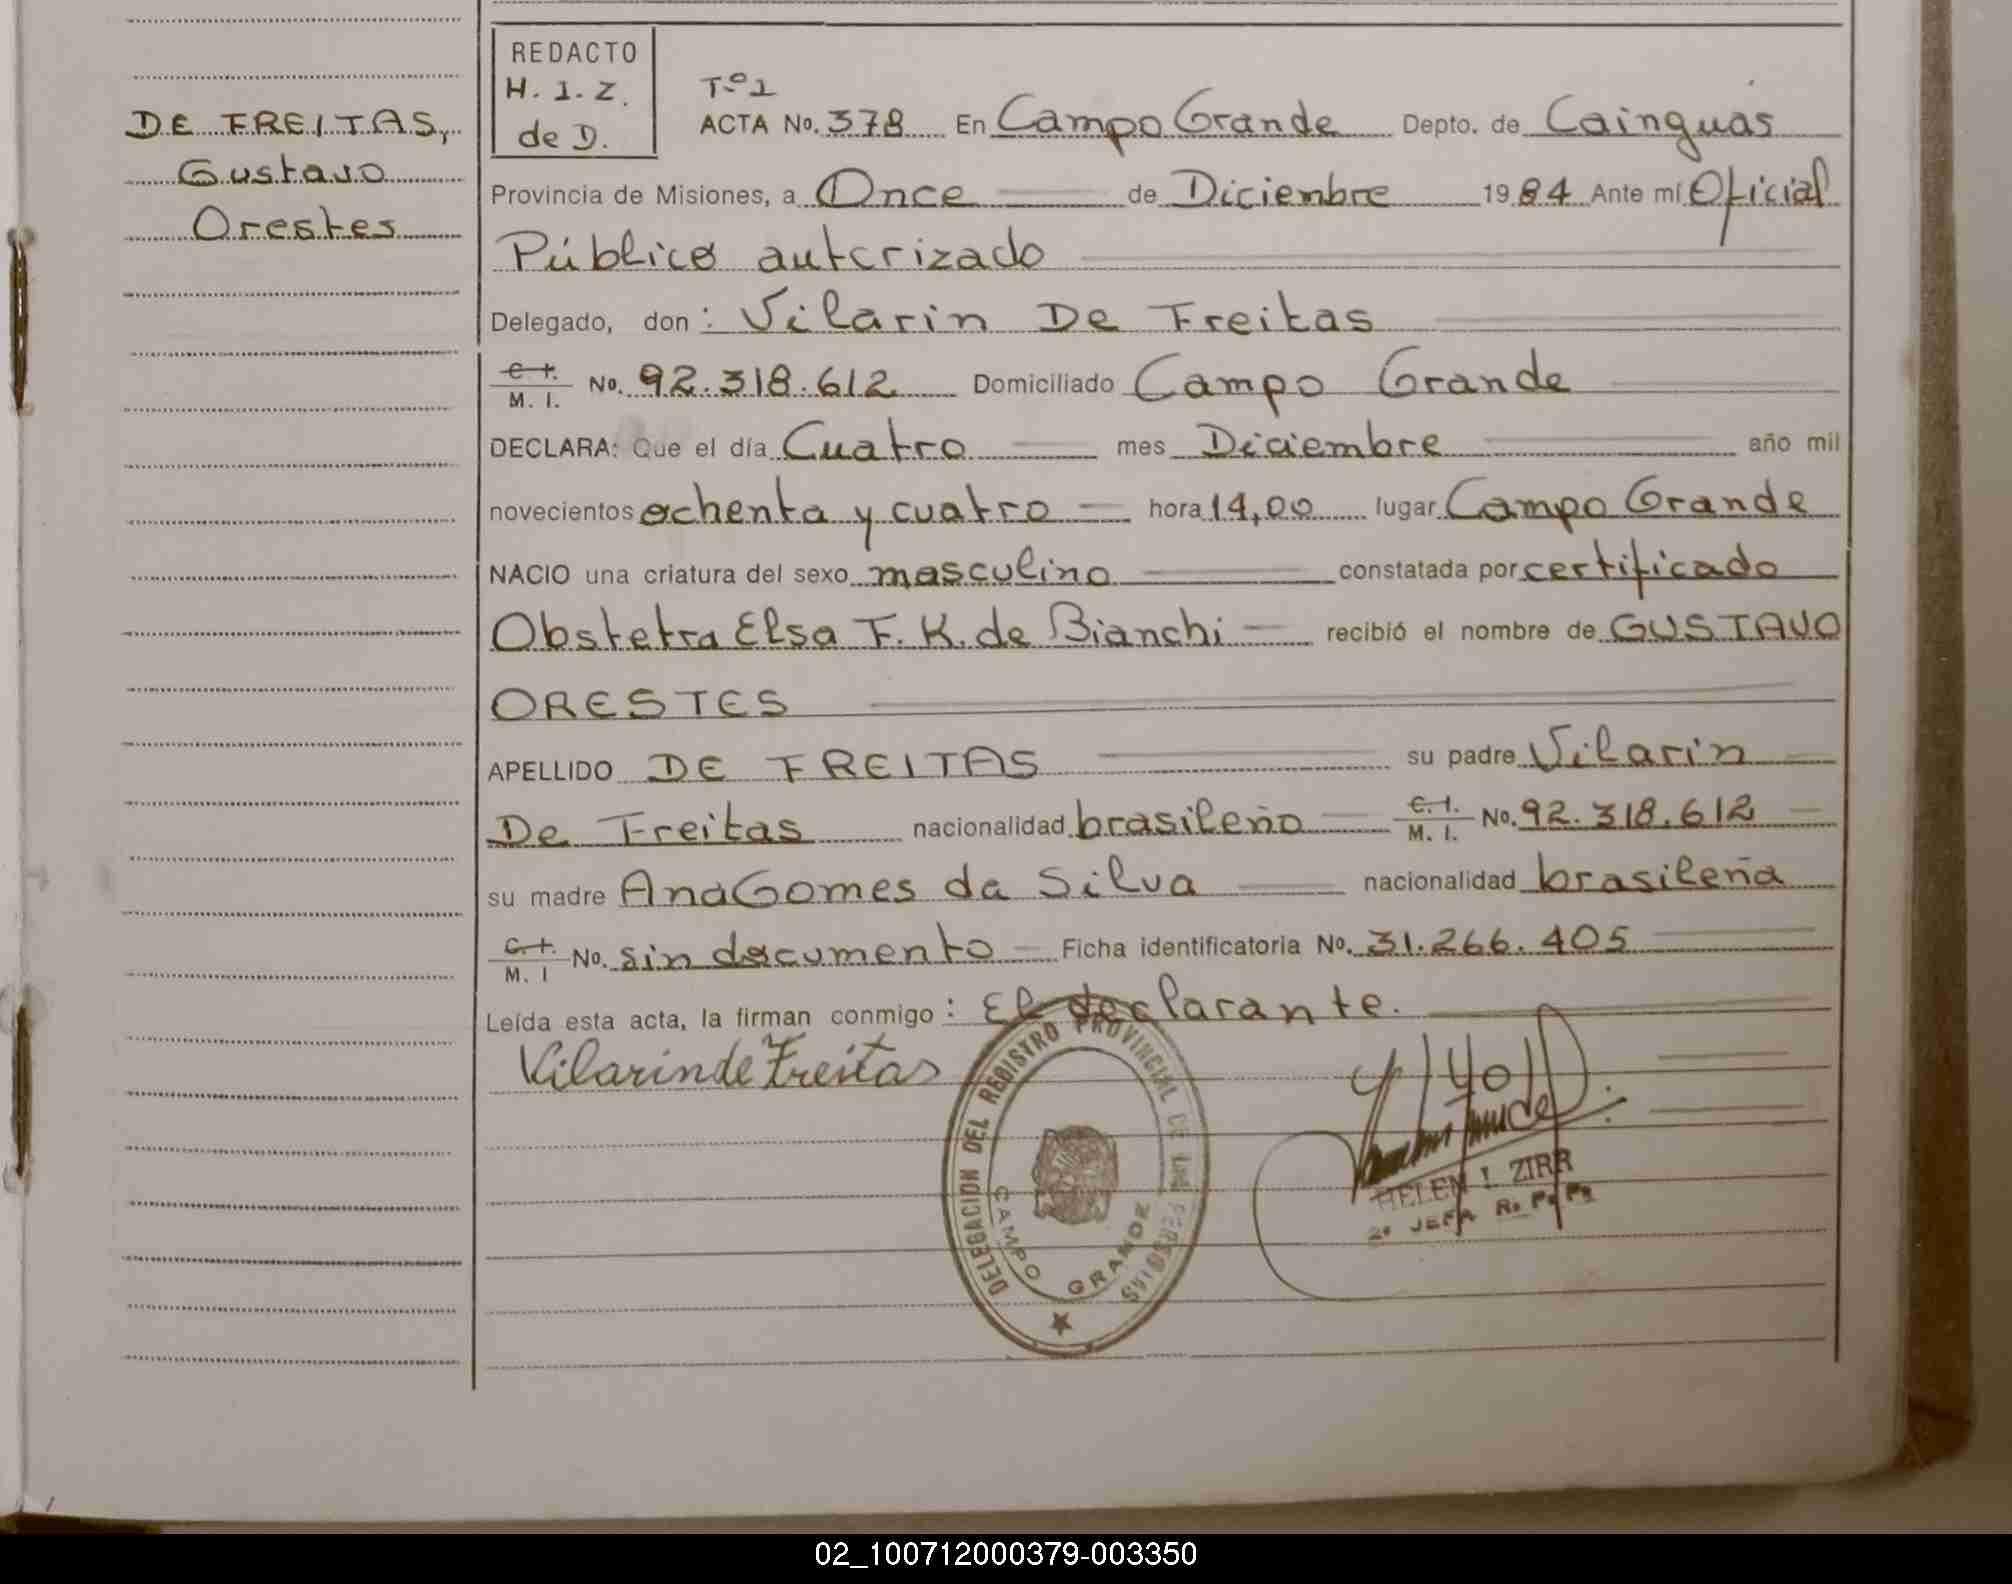 DE FREITAS,
Gustavo
Orestes
REDACTO
H. I. Z.
de D.
Tº 1
ACTA No. 378 En Campo Grande Depto. de Cainguás
Provincia de Misiones, a Once de Diciembre 1984 Ante mí Oficial
Público autorizado
Delegado, don: Vilarin De Freitas
C. I. M. I. No. 92.318.612 Domiciliado Campo Grande
DECLARA: Que el día Cuatro mes Diciembre año mil
novecientos ochenta y cuatro hora 14,00 lugar Campo Grande
NACIO una criatura del sexo masculino constatada por certificado
Obstetra Elsa F. K. de Bianchi recibió el nombre de GUSTAVO
ORESTES
APELLIDO DE FREITAS su padre Vilarin
De Freitas nacionalidad brasileño C. I. M. I. No. 92.318.612
su madre Ana Gomes da Silva nacionalidad brasileña
C. I. M. I No. sin documento Ficha identificatoria No. 31.266.405
Leída esta acta, la firman conmigo: El declarante.
Vilarin de Freitas
DELEGACION DEL REGISTRO PROVINCIAL DE LAS PERSONAS
CAMPO GRANDE
HELEN I. ZIRR
2º JEFA R. P. P.
02_100712000379-003350